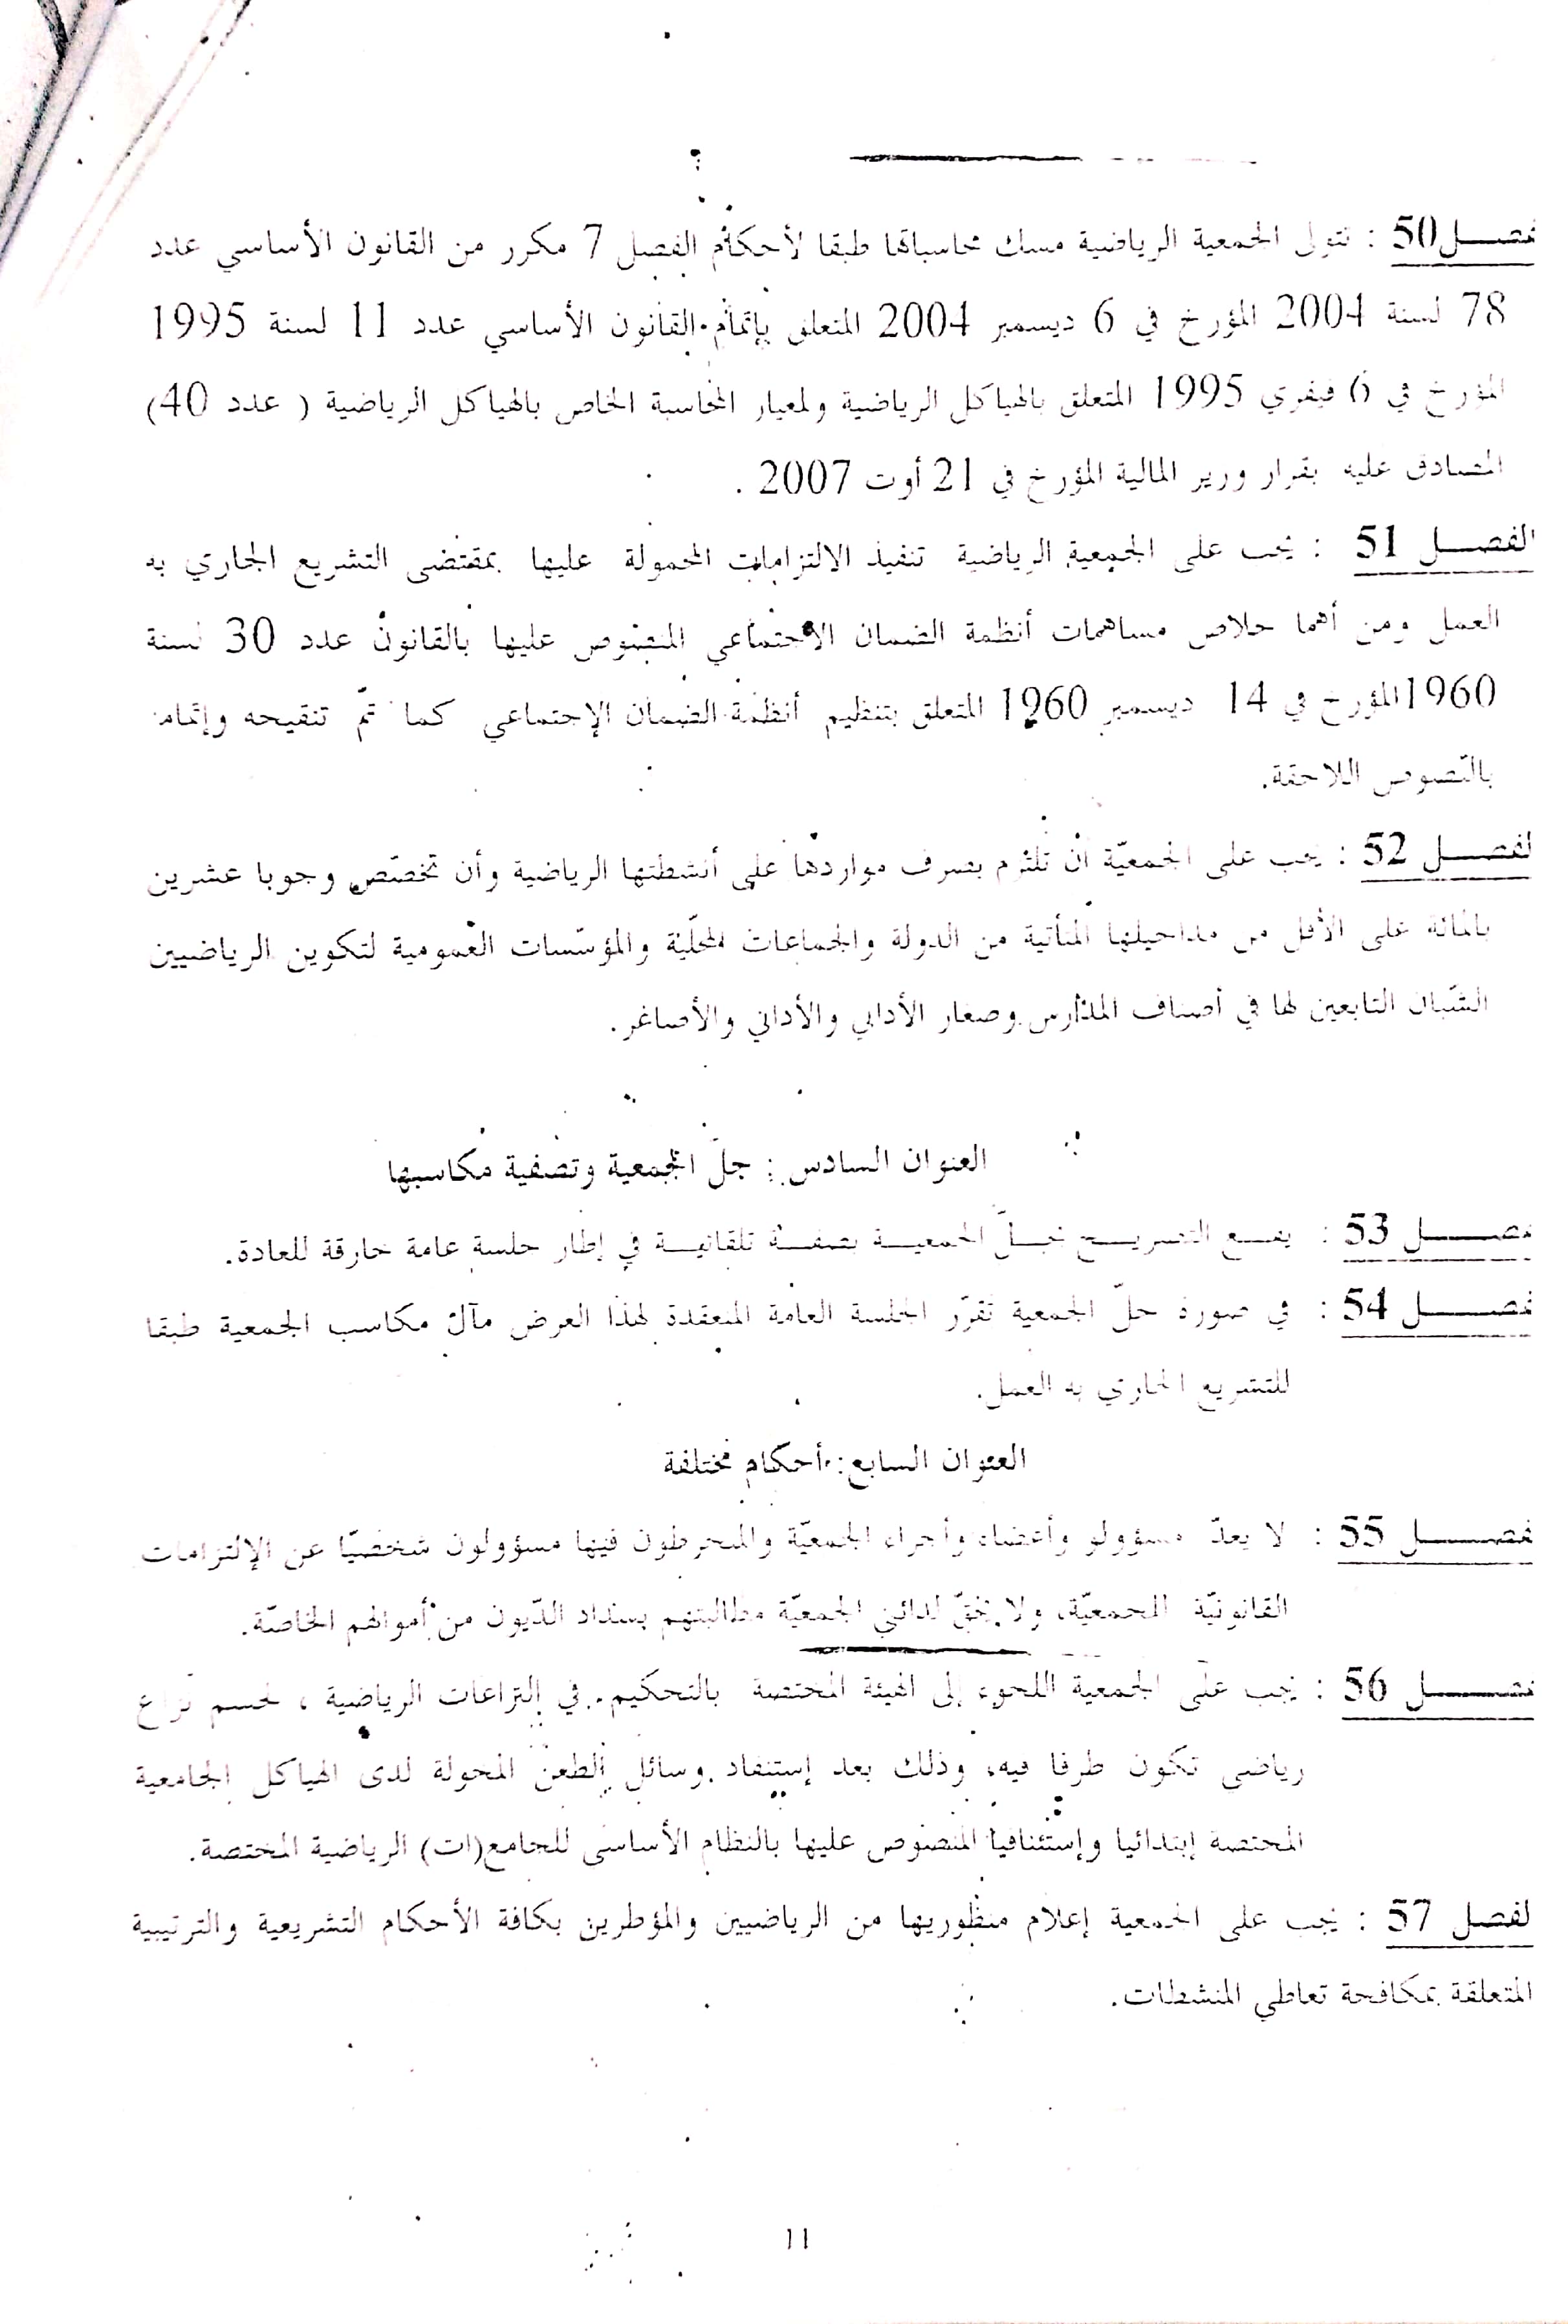 فصـــل 50 : تتولى الجمعية الرياضية مسك محاسباتها طبقا لأحكام الفصل 7 مكرر من القانون الأساسي عدد
78 لسنة 2004 المؤرخ في 6 ديسمبر 2004 المتعلق بإتمام القانون الأساسي عدد 11 لسنة 1995
المؤرخ في 6 فيفري 1995 المتعلق بالهياكل الرياضية ولمعيار المحاسبة الخاص بالهياكل الرياضية ( عدد 40)
المصادق عليه بقرار وزير المالية المؤرخ في 21 أوت 2007 .
الفصـــل 51 : يجب على الجمعية الرياضية تنفيذ الالتزامات المحمولة عليها بمقتضى التشريع الجاري به
العمل ومن أهما خلاص مساهمات أنظمة الضمان الاجتماعي المنصوص عليها بالقانون عدد 30 لسنة
1960 المؤرخ في 14 ديسمبر 1960 المتعلق بتنظيم أنظمة الضمان الإجتماعي كما تمّ تنقيحه وإتمامه
بالنّصوص اللاحقة.
لفصـــل 52 : يجب على الجمعيّة أن تلتزم بصرف مواردها على أنشطتها الرياضية وأن تخصّص وجوبا عشرين
بالمائة على الأقل من مداخيلها المتأتية من الدولة والجماعات المحلّية والمؤسّسات العمومية لتكوين الرياضيين
الشّبان التابعين لها في أصناف المدارس وصغار الأداني والأداني والأصاغر.
العنوان السادس : حلّ الجمعية وتصفية مكاسبها
فصـــل 53 : يقـع التصريـح بحـلّ الجمعيـة بصفـة تلقائيـة في إطار جلسة عامة خارقة للعادة.
فصـــل 54 : في صورة حلّ الجمعية تقرّر الجلسة العامة المنعقدة لهذا الغرض مآل مكاسب الجمعية طبقا
للتشريع الجاري به العمل.
العنوان السابع: أحكام مختلفة
فصـــل 55 : لا يعدّ مسؤولو وأعضاء وأجراء الجمعيّة والمنخرطون فيها مسؤولون شخصيّا عن الإلتزامات
القانونيّة للجمعيّة، ولا يحقّ لدائني الجمعيّة مطالبتهم بسداد الدّيون من أموالهم الخاصّة.
فصـــل 56 : يجب على الجمعية اللجوء إلى الهيئة المختصة بالتحكيم في النزاعات الرياضية ، لحسم نزاع
رياضي تكون طرفا فيه، وذلك بعد إستنفاد وسائل الطعن المخولة لدى الهياكل الجامعية
المختصة إبتدائيا وإستئنافيا المنصوص عليها بالنظام الأساسي للجامع(ات) الرياضية المختصة.
لفصل 57 : يجب على الجمعية إعلام منظوريها من الرياضيين والمؤطرين بكافة الأحكام التشريعية والترتيبية
المتعلقة بمكافحة تعاطي المنشطات.
11